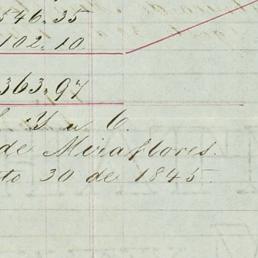 546.35
102.10
363.97
Y u C.
de Miraflores.
to 30 de 1845